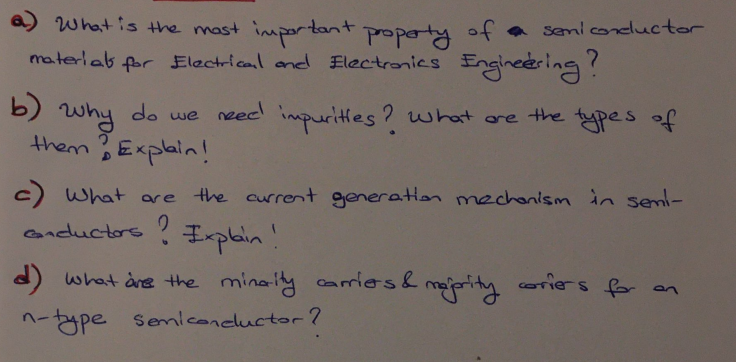 a) What is the most important property of a semiconductor
materials for Electrical and Electronics Engineering?
b) Why do we need impurities? What are the types of
them? Explain!
c) What are the current generation mechanism in semi-
conductors? Explain!
d) What are the minority carriers & majority carriers for an
n-type semiconductor?